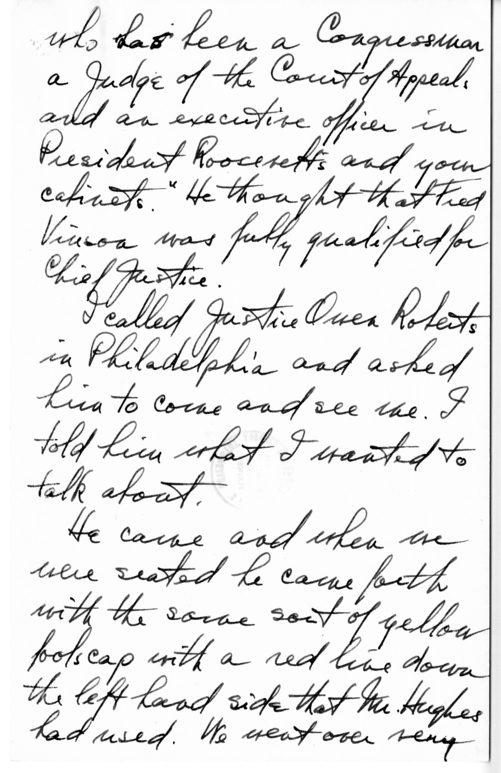 who has been a Congressman
a Judge of the Court of Appeals
and an executive officer in
President Roosevelt's and your
cabinets." He thought that Fred
Vinson was fully qualified for
Chief Justice.
I called Justice Owen Roberts
in Philadelphia and asked
him to come and see me. I
told him what I wanted to
talk about.
He came and when we
were seated he came forth
with the same sort of yellow
foolscap with a red line down
the left hand side that Mr. Hughes
had used. We went over very